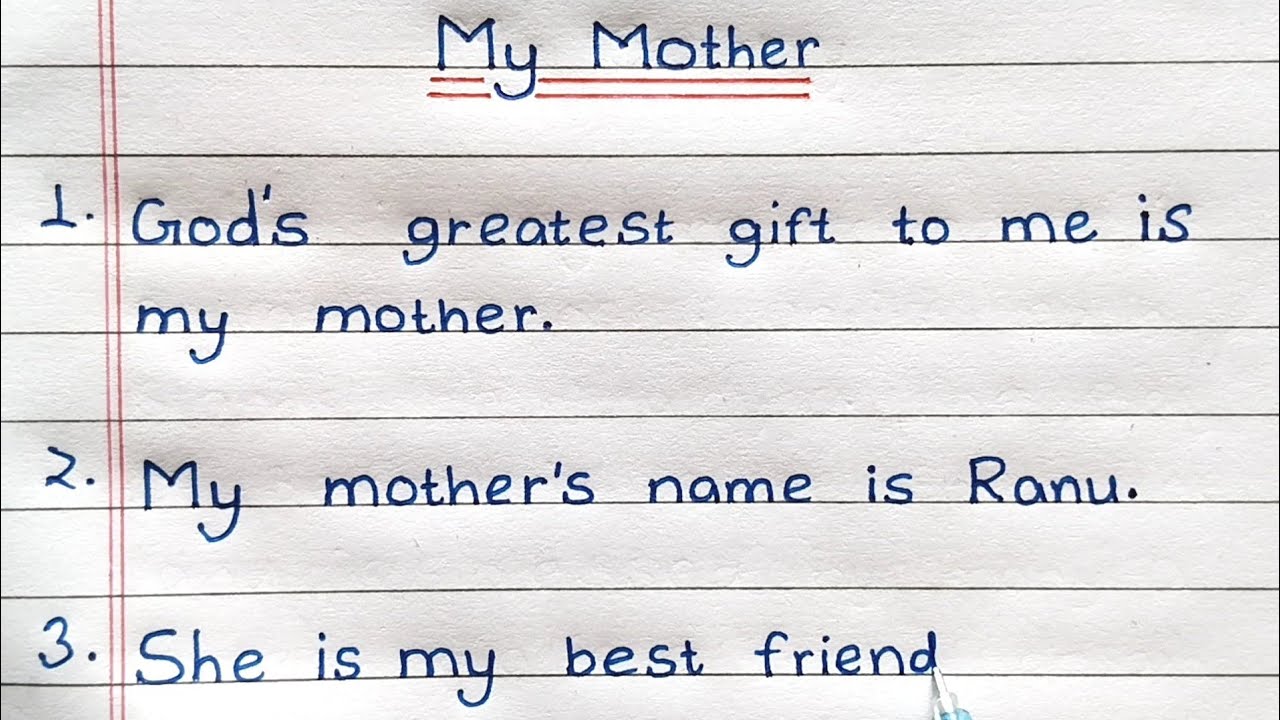 My Mother
1. God's greatest gift to me is
my mother.
2. My mother's name is Ranu.
3. She is my best friend